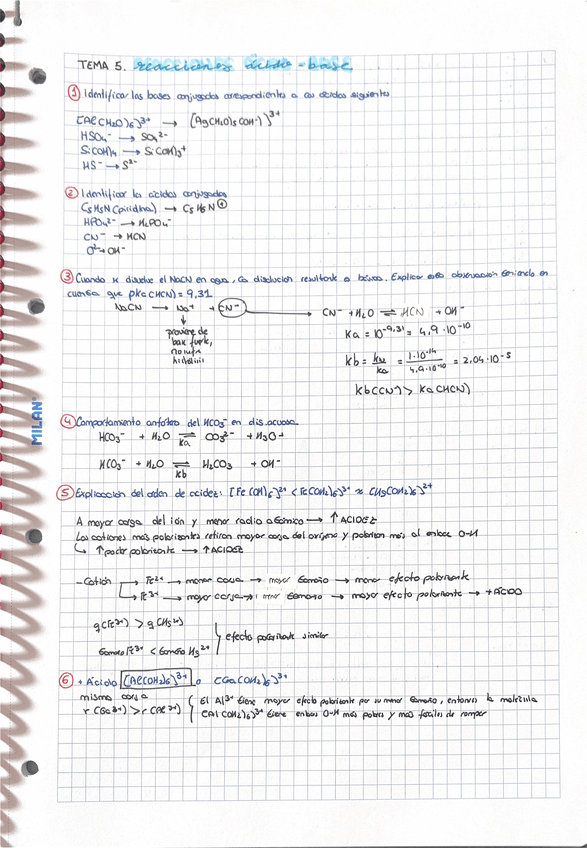 TEMA 5. reacciones ácido-base
① Identificar las bases conjugadas correspondientes a los ácidos siguientes
[Al(H2O)6]3+ → [Ag(H2O)5(OH-)]3+
HSO4- → SO4 2-
Si(OH)4 → Si(OH)3+
HS- → S2-
② Identificar los ácidos conjugados
C5H5N (piridina) → C5H6N ⊕
HPO4 2- → H2PO4-
CN- → HCN
O2- → OH-
③ Cuando se disuelve el NaCN en agua, la disolución resultante es básica. Explicar esta observación teniendo en
cuenta que pKa (HCN) = 9,31
NaCN → Na+ + CN- → CN- + H2O ⇌ HCN + OH-
proviene de
base fuerte,
no sufre
hidrólisis
Ka = 10-9,31 = 4,9 · 10-10
Kb = Kw/Ka = 1·10-14/4,9·10-10 = 2,04·10-5
Kb(CN-) > Ka(HCN)
MILAN
④ Comportamiento anfótero del HCO3- en dis. acuosa
HCO3- + H2O ⇌ CO3 2- + H3O+
Ka
HCO3- + H2O ⇌ H2CO3 + OH-
Kb
⑤ Explicación del orden de acidez: [Fe(OH2)6]2+ < [Fe(OH2)6]3+ ≈ [Hg(OH2)6]2+
A mayor carga del ión y menor radio atómico → ↑ ACIDEZ
Los cationes más polarizantes retiran mayor carga del oxígeno y polarizan más al enlace O-H
↳ ↑ poder polarizante → ↑ ACIDEZ
- Catión → Fe2+ → menor carga → mayor tamaño → menor efecto polarizante
→ Fe3+ → mayor carga → menor tamaño → mayor efecto polarizante → + ÁCIDO
q(Fe3+) > q(Hg2+)
tamaño Fe3+ < tamaño Hg2+
efecto polarizante similar
⑥ + Ácido [Al(OH2)6]3+ o [Ga(OH2)6]3+
misma carga
r (Ga3+) > r (Al3+)
El Al3+ tiene mayor efecto polarizante por su menor tamaño, entonces la molécula
[Al(OH2)6]3+ tiene enlaces O-H más polares y más fáciles de romper